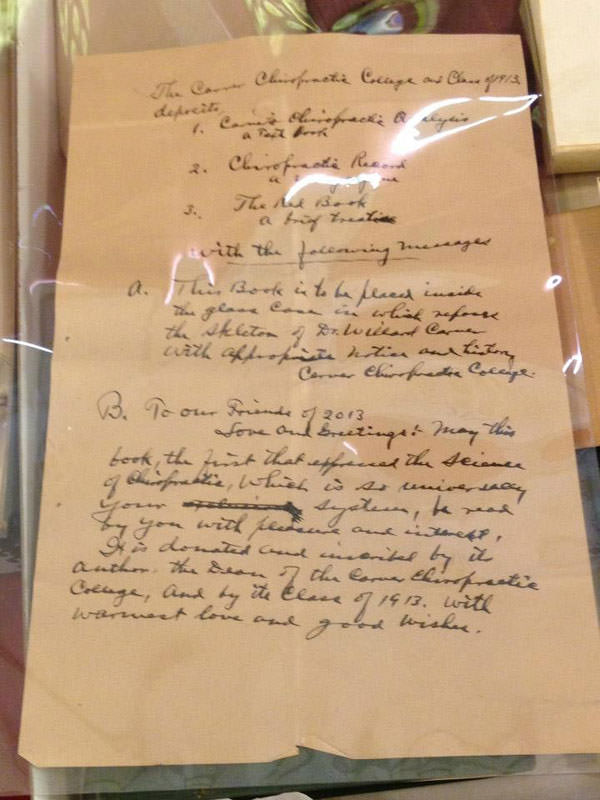 The Carver Chiropractic College and Class of 1913.
deposits
1. Carver's Chiropractic Analysis
a Text Book
2. Chiropractic Record
a
3. The Red Book
a brief treatise
with the following messages
A. This Book is to be placed inside
the glass case in which reposes
the skeleton of Dr. Willard Carver
with appropriate notice and history
Carver Chiropractic College.
B. To our Friends of 2013
Love and Greetings:- May this
book, the first that expressed the science
of Chiropractic, which is so universally
your system, be read
by you with pleasure and interest.
It is donated and inscribed by its
author. the Dean of the Carver Chiropractic
College, and by its Class of 1913. with
warmest love and good wishes.